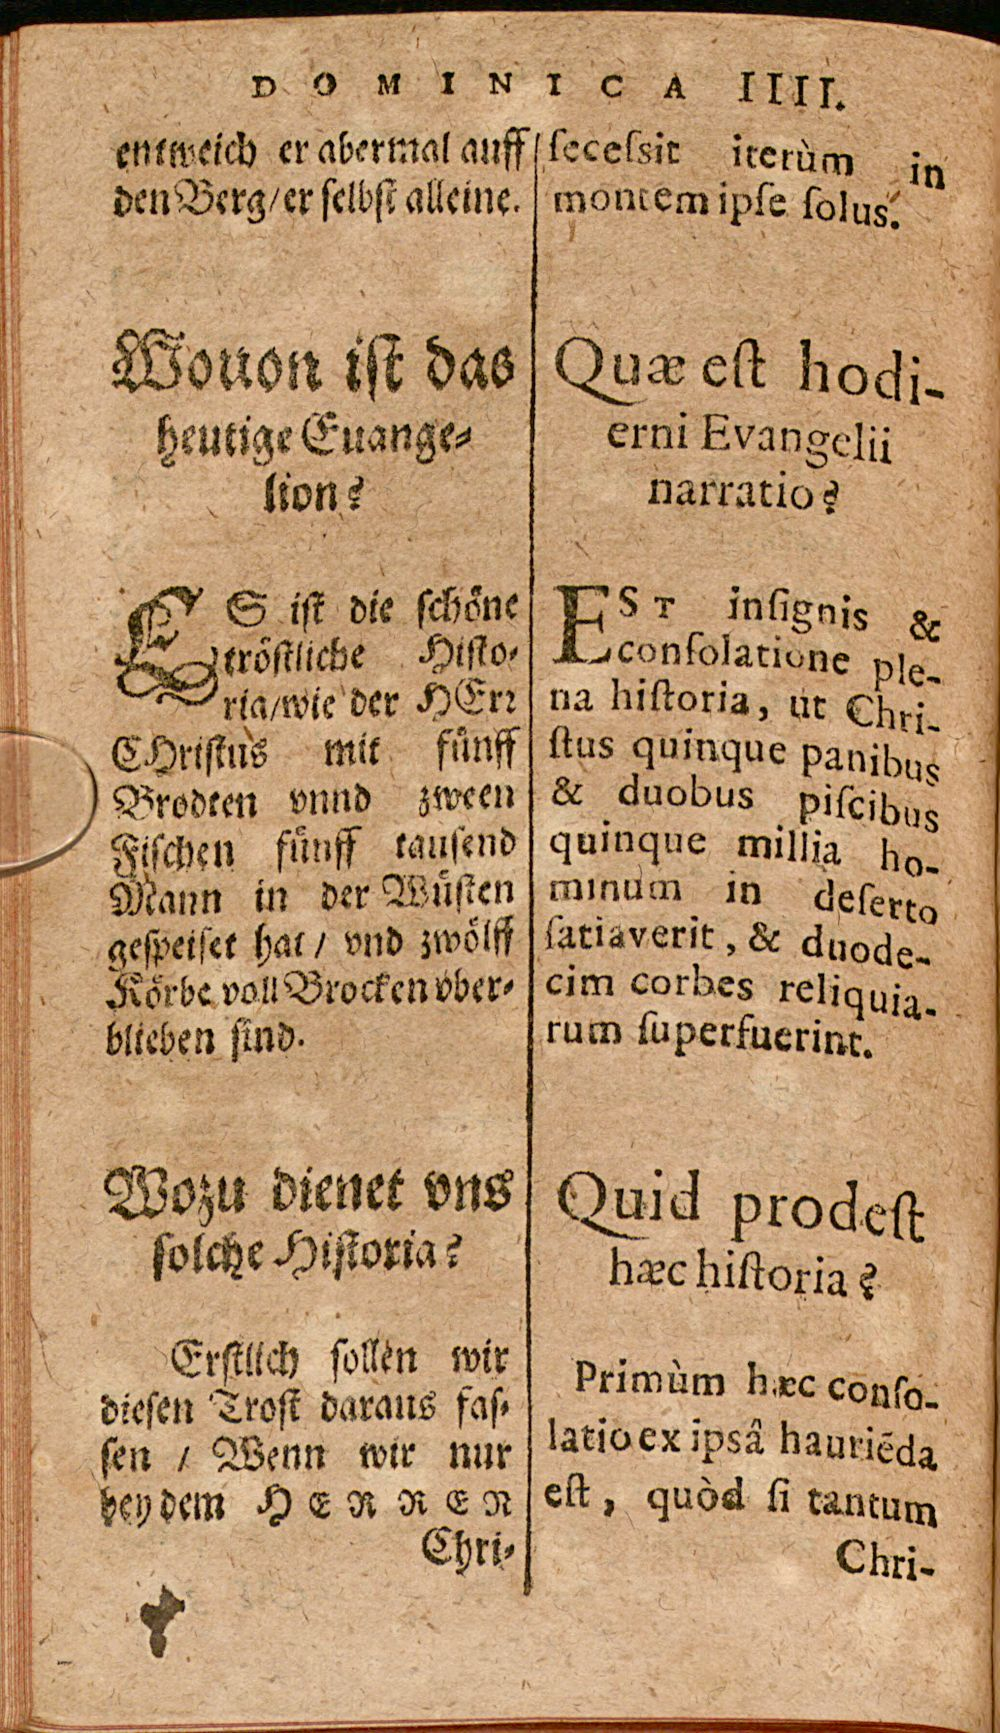 DOMINICA IIII.
entweich er abermal auff
den Berg/er selbst alleine.
Wouon ist das
heutige Euange-
lion?
ES ist die schöne
tröstliche Histo-
ria/wie der HErr
CHristus mit fünff
Brodten vnnd zween
Fischen fünff tausend
Mann in der Wüsten
gespeiset hat / vnd zwölff
Körbe voll Brocken vber-
blieben sind.
Wozu dienet vns
solche Historia?
Erstlich sollen wir
diesen Trost daraus fas-
sen / Wenn wir nur
bey dem HERREN
Chri-
ſeceſsit iterùm in
montem ipſe ſolus.
Quæ eſt hodi-
erni Evangelii
narratio?
EST inſignis &
conſolatione ple-
na hiſtoria, ut Chri-
ſtus quinque panibus
& duobus piſcibus
quinque millia ho-
minum in deſerto
ſatiaverit, & duode-
cim corbes reliquia-
rum ſuperfuerint.
Quid prodeſt
hæc hiſtoria?
Primùm hæc conſo-
latio ex ipsâ hauriēda
eſt, quòd ſi tantum
Chri-